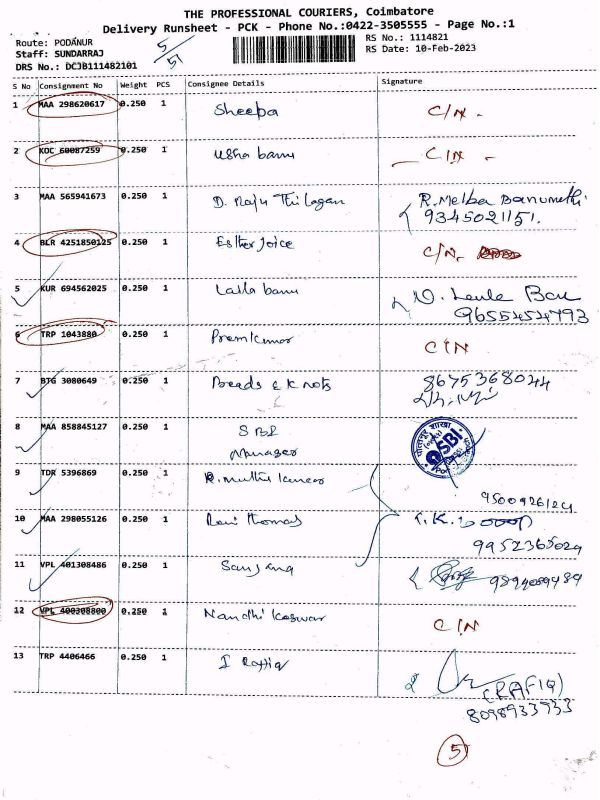 THE PROFESSIONAL COURIERS, Coimbatore
Delivery Runsheet - PCK - Phone No.:0422-3505555 - Page No.:1
Route: PODANUR
Staff: SUNDARRAJ
DRS No.: DCJB111482101
5/5
RS No.: 1114821
RS Date: 10-Feb-2023
S No Consignment No Weight PCS Consignee Details Signature
1 MAA 298620617 0.250 1 Sheeba C/N -
2 KOC 60087259 0.250 1 Usha banu - C/N -
3 MAA 565941673 0.250 1 D. Raju Thilagan R. Melba Banumathi
9345021151.
4 BLR 4251850125 0.250 1 Esther Joice C/N.
5 KUR 694562025 0.250 1 Laila banu
9655454793
6 TRP 1043880 0.250 1 Premkumar C/N
7 BTG 3080649 0.250 1 Beads & knots 8675368044
8 MAA 858845127 0.250 1 SBI
Manager
SBI
9 TDK 5396869 0.250 1 R. muthu kumar
9500926124
10 MAA 298055126 0.250 1 Ravi thomas
9952365024
11 VPL 401308486 0.250 1 Sanjana 9894089489
12 VPL 400308800 0.250 1 Nandhi C/N
13 TRP 4406466 0.250 1 I Rafiq
(RAFIQ)
8098933933
5